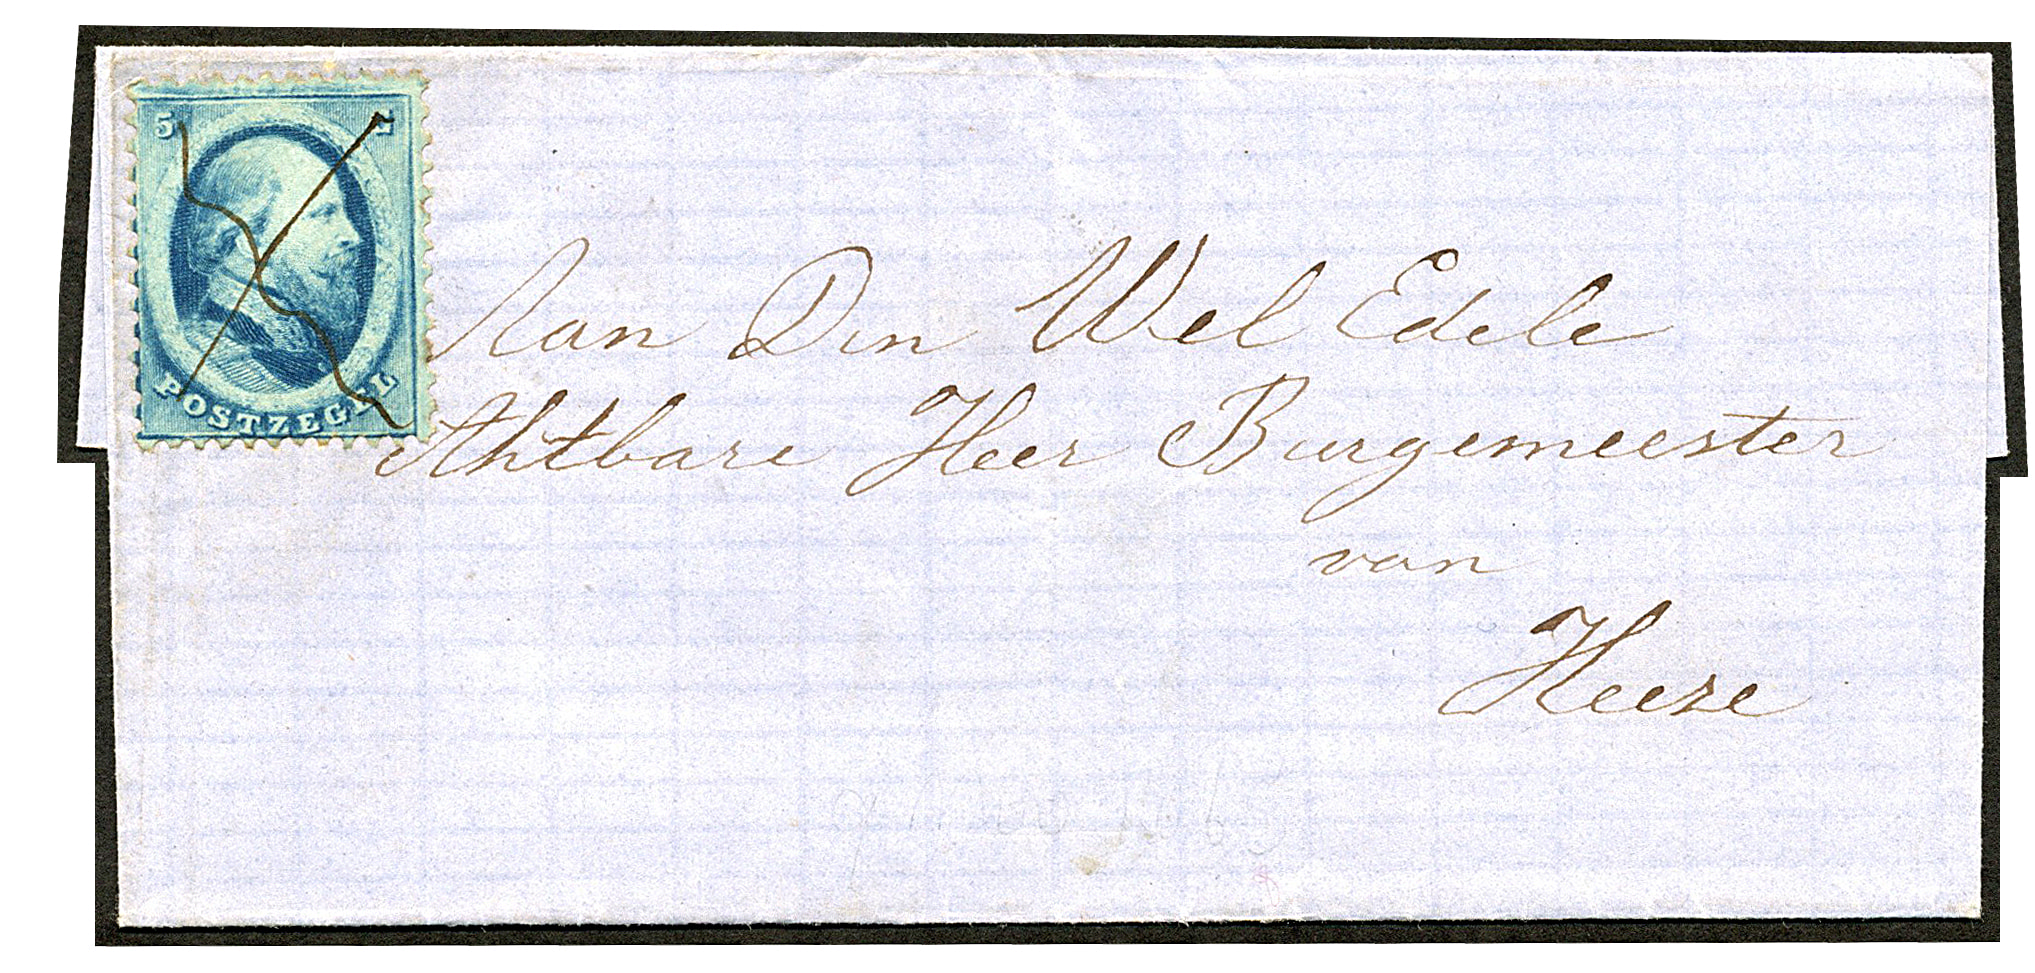 5
POSTZEGEL
Aan Den Wel Edele
Ahtbare Heer Burgemeester
van
Heeze